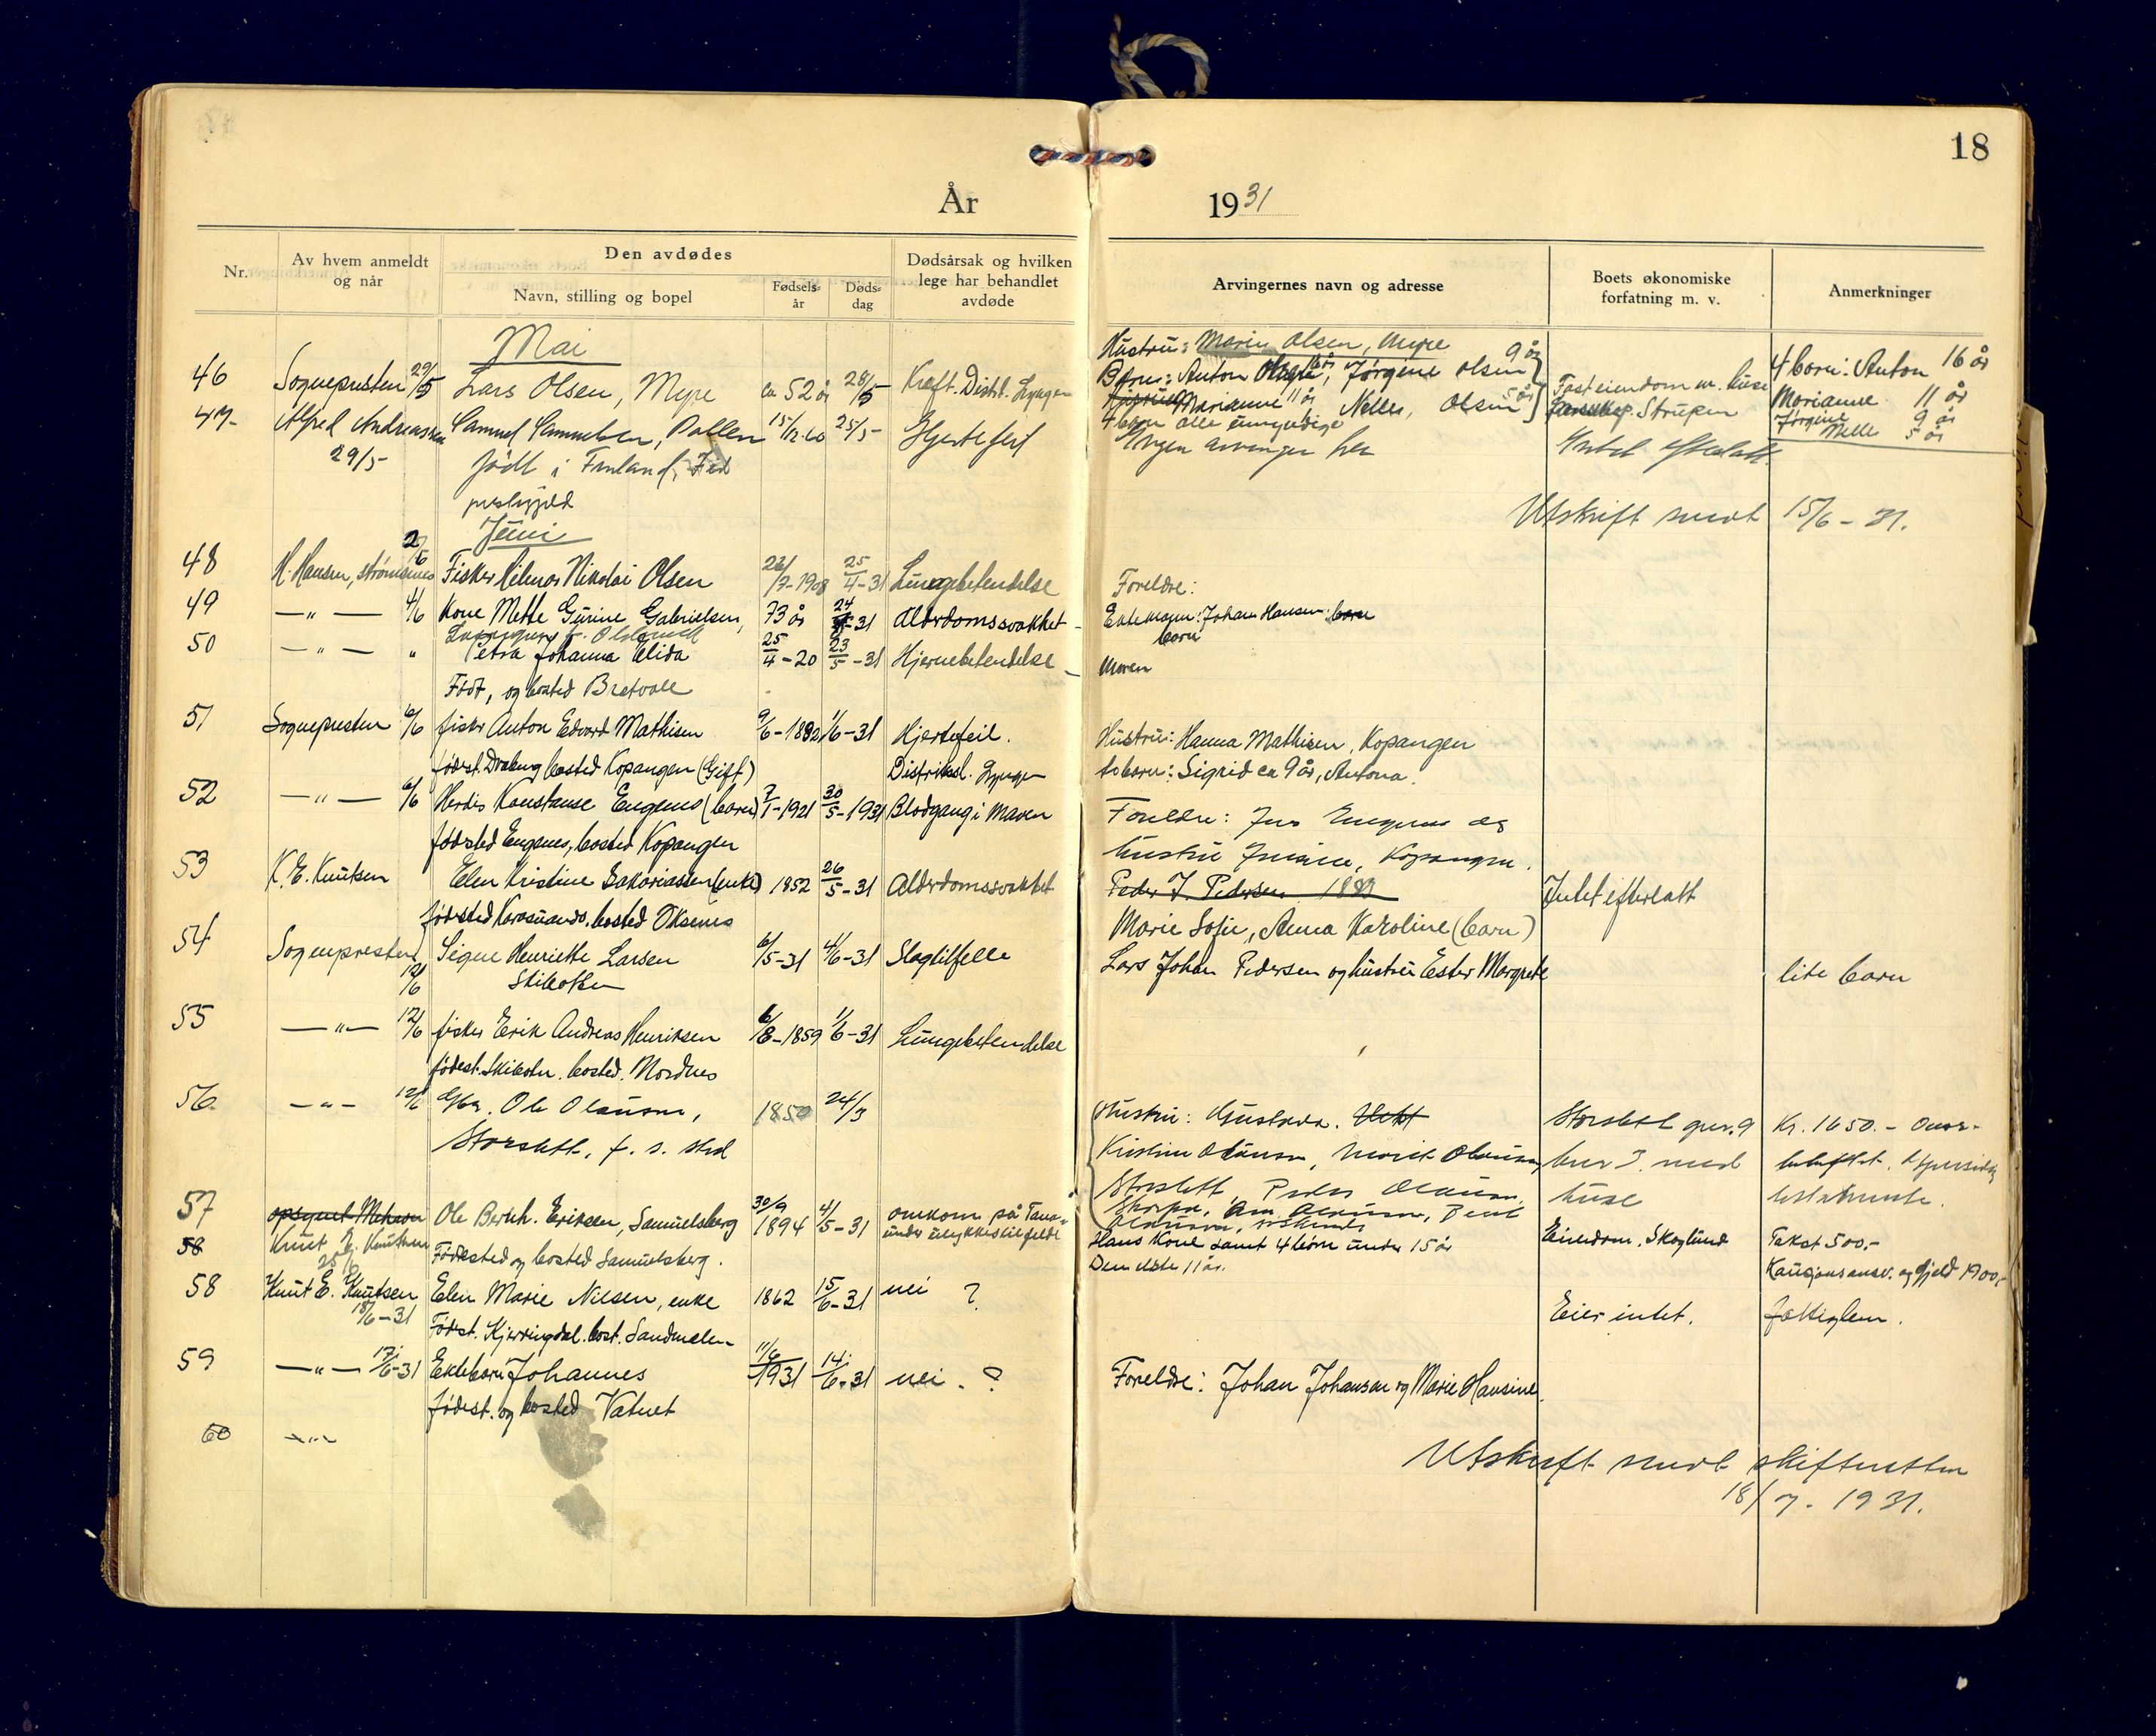 18
År 1931
Nr.
Av hvem anmeldt og når
Den avdødes
Navn, stilling og bopel
Fødsels-år
Døds-dag
Dødsårsak og hvilken lege har behandlet avdøde
Arvingernes navn og adresse
Boets økonomiske forfatning m. v.
Anmerkninger
Mai
46 Sognepresten 29/5 Lars Olsen, Myre ca 52 år 28/5 Kreft. Distrl. Lyngen
Hustru: Marin Olsen, Myre
Børn: Anton 16 år, Jørgine Olsen 9 år
Marianne 11 år Nelles, Olsen 5 år
4 børn alle umyndige
Fast eiendom m. huse
Strupen
4 born: Anton 16 år
Marianne 11 år
Jørgine 9 år
Nelle 5 år
47 Alfred Andreassen 29/5 Samuel Samuelsen, Pollen 15/12.60 25/5 Hjertefeil
født i Finland,
prestegjeld
Ingen arvinger her
Intet efterlatt.
Utskrift sendt 15/6 - 31.
Juni
48 H. Hansen, Strømsnes 2/6 Fisker Hilmar Nikolai Olsen 26/7-1908 25/4-31 Lungebetendelse
Foreldre:
49 —"— 4/6 Kone Mette Gurine Gabrielsen, 73 år 24/5-31 Alderdomssvakhet
Ektemann: Johan Hansen. barn
barn
50 —"— " Petra Johanna Elida 25/4-20 23/5-31 Hjernebetendelse
Født, og bosted Bretvoll
Moren
51 Sognepresten 6/6 fisker Anton Edvard Mathisen 9/6-1892 1/6-31 Hjertefeil.
fødest. Draberg bosted Kopangen (Gift) Distriktsl. Lyngen
Hustru: Hanna Mathisen, Kopangen
to barn: Sigrid ca 9 år, Antona.
52 —"— 6/6 Herdis Konstanse Engenes (barn) 7/1-1921 30/5-1931 Blodgang i Maven
fødested Engenes, bosted Kopangen
Foreldre: Jens Engenes og
hustru Jensine, Kopangen.
53 K. E. Knutsen Elen Kristine Sakariassen (enke) 1852 26/5-31 Alderdomssvakhet
fødested Karesuando. bosted Oksenes
Peder J. Pedersen 1883
Marie Sofie, Anna Karoline (barn)
Intet efterlatt
54 Sognepresten 12/6 Signe Henriette Larsen 6/5-31 4/6-31 Slagtilfelle
Skibotn
Lars Johan Pedersen og hustru Ester Margrete
lite barn
55 —"— 12/6 fisker Erik Andreas Henriksen 6/8-1859 1/6-31 Lungebetendelse
fødest. Skibotn. bosted. Nordnes
56. —"— 12/6 Gbr. Ole Olausen, 1850 24/3
Storslett, f. s. sted
Hustru: Gustava.
Kristine Olausen, Marit Olausen,
Storslett, Peder Olausen,
Storslett gnr. 9
bnr 3. med
huse
Kr. 1650.-
57 Knut E. Knutsen Ole Berth. Eriksen, Samuelsberg 30/9 1894 4/5-31 omkom på Tana-
under ulykkestilfelde
Fødested og bosted Samuelsberg.
Hans Kone samt 4 børn under 15 år
Den elste 11 år.
Eiendom, Skoglund
Takst 500,-
Kausjonsansv. og Gjeld 1900,-
58 Knut E. Knutsen Elen Marie Nilsen, enke 1862 15/6-31 nei ?
18/6-31 Fødest. Kjerringdal. bost. Sandmelen
Eier intet.
fattiglem.
59 —"— 17/6-31 Ektebarn Johannes 11/6 1931 14/6-31 nei. ?
fødest. og bosted Vatnet
Foreldre: Johan Johansen og Marie Hansine.
60 —"—
Utskrift sendt skifteretten
18/7 - 1931.